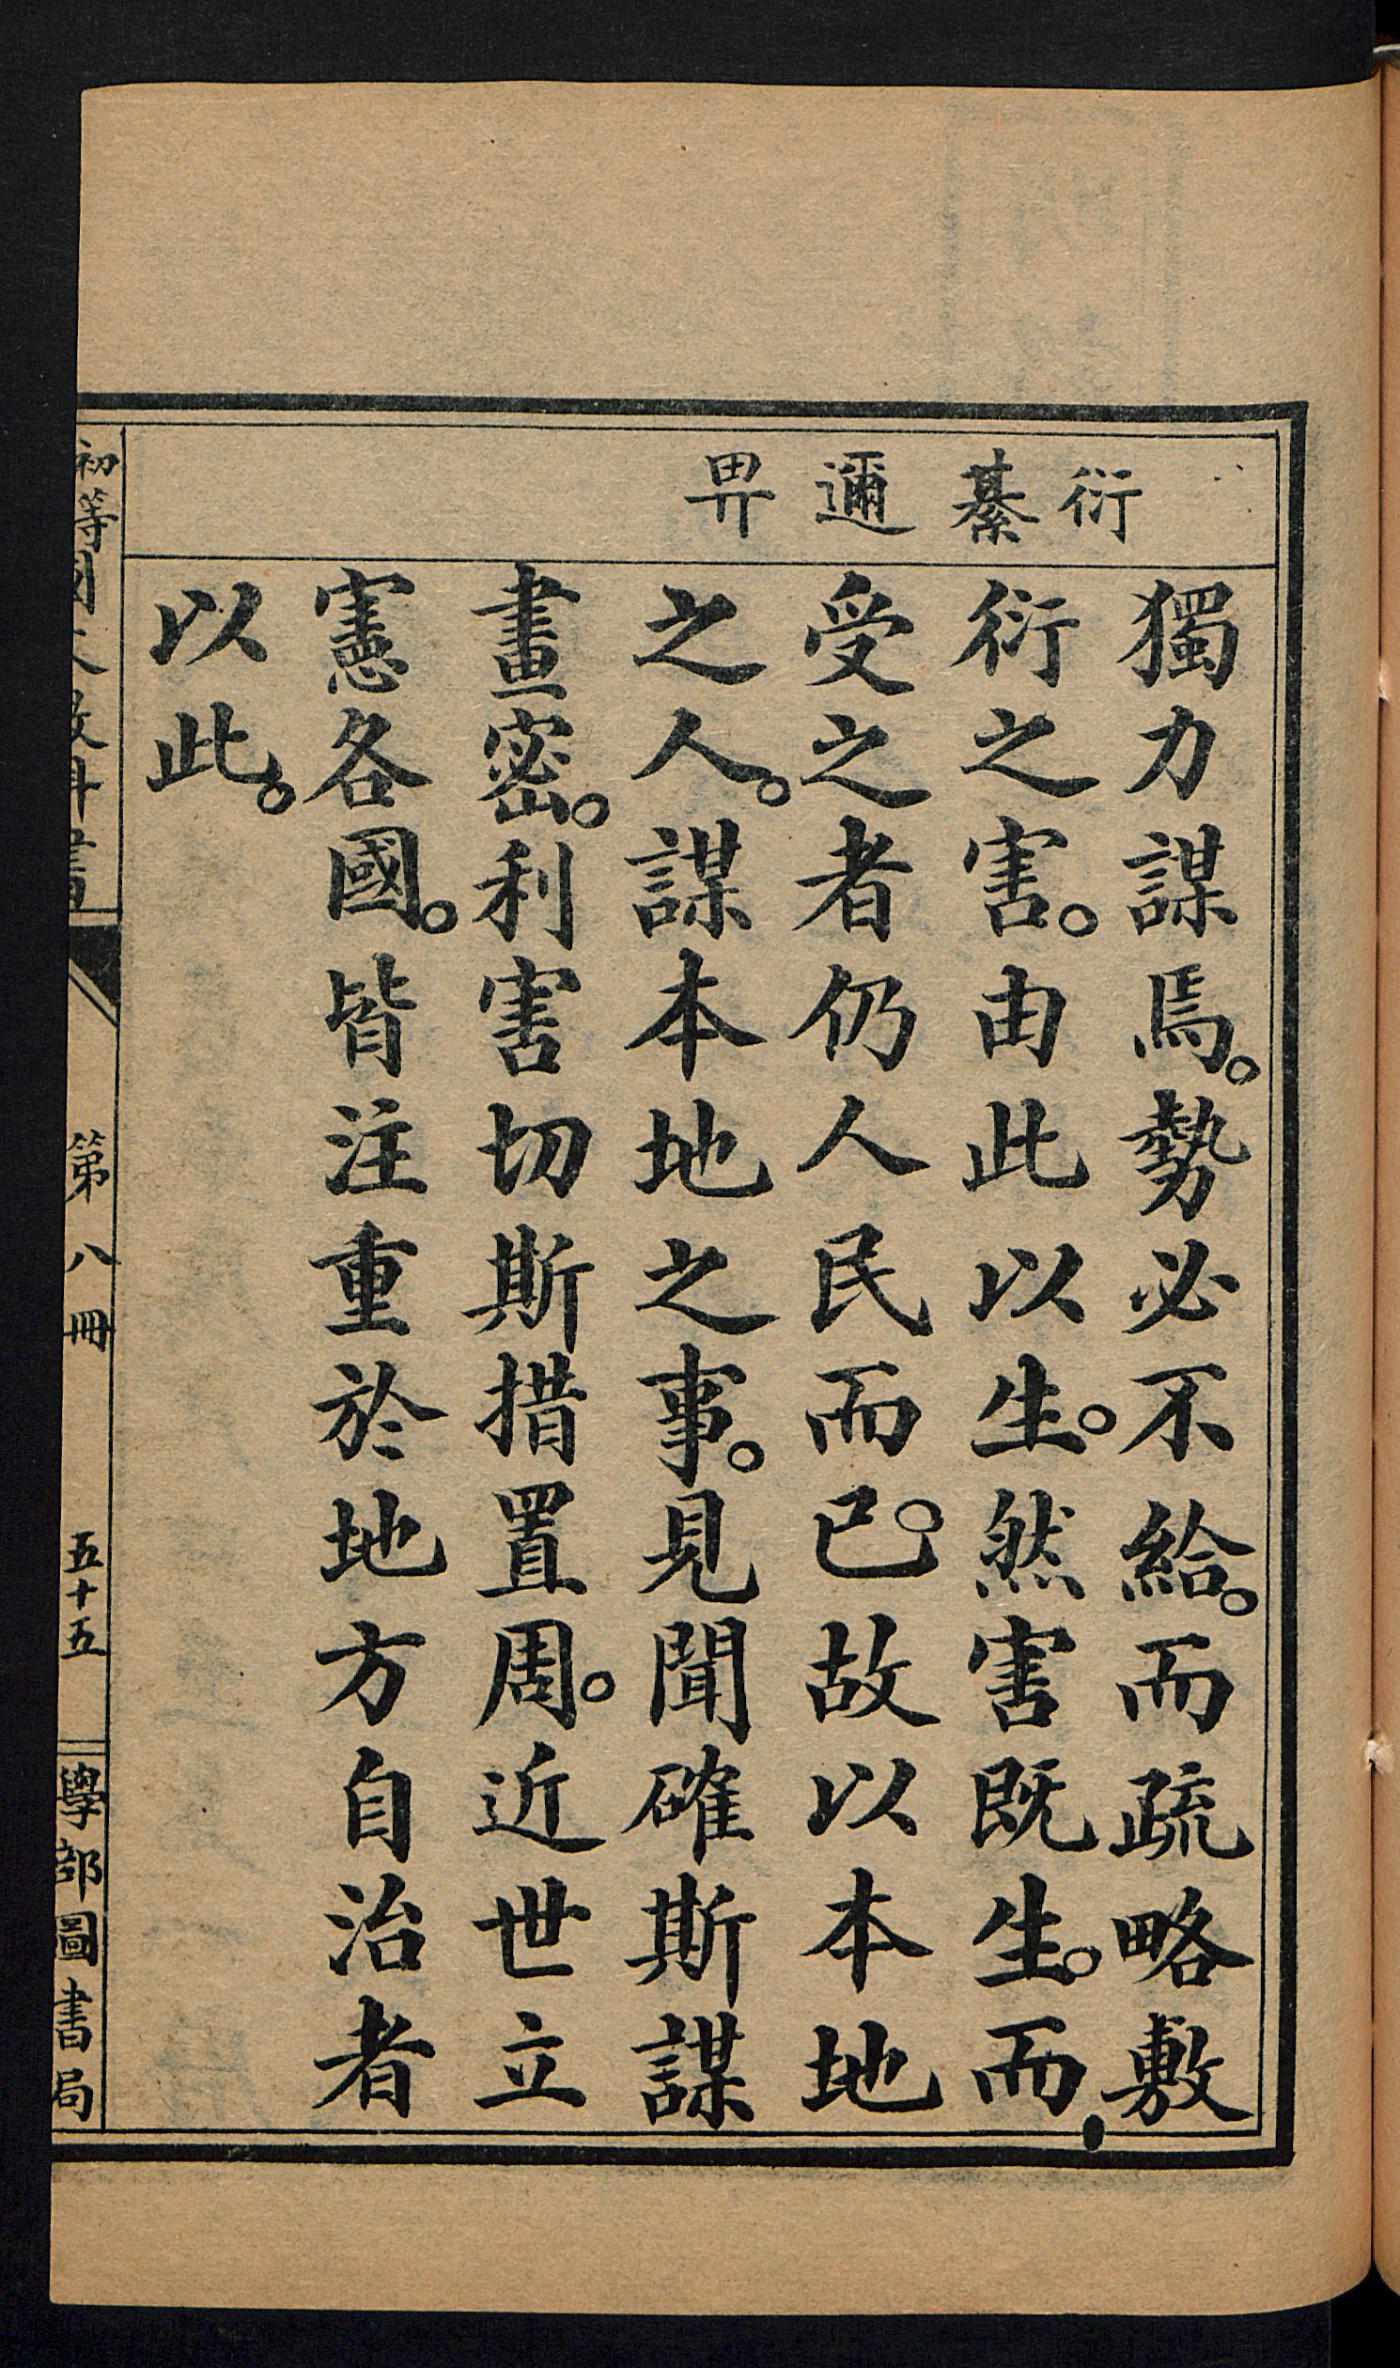 衍綦邇畀
獨力謀焉。勢必不給。而疏略敷
衍之害。由此以生。然害既生。而
受之者仍人民而已。故以本地
之人。謀本地之事。見聞確斯謀
畫密。利害切斯措置周。近世立
憲各國。皆注重於地方自治者
以此。
初等國文教科書
第八冊
五十五
學部圖書局